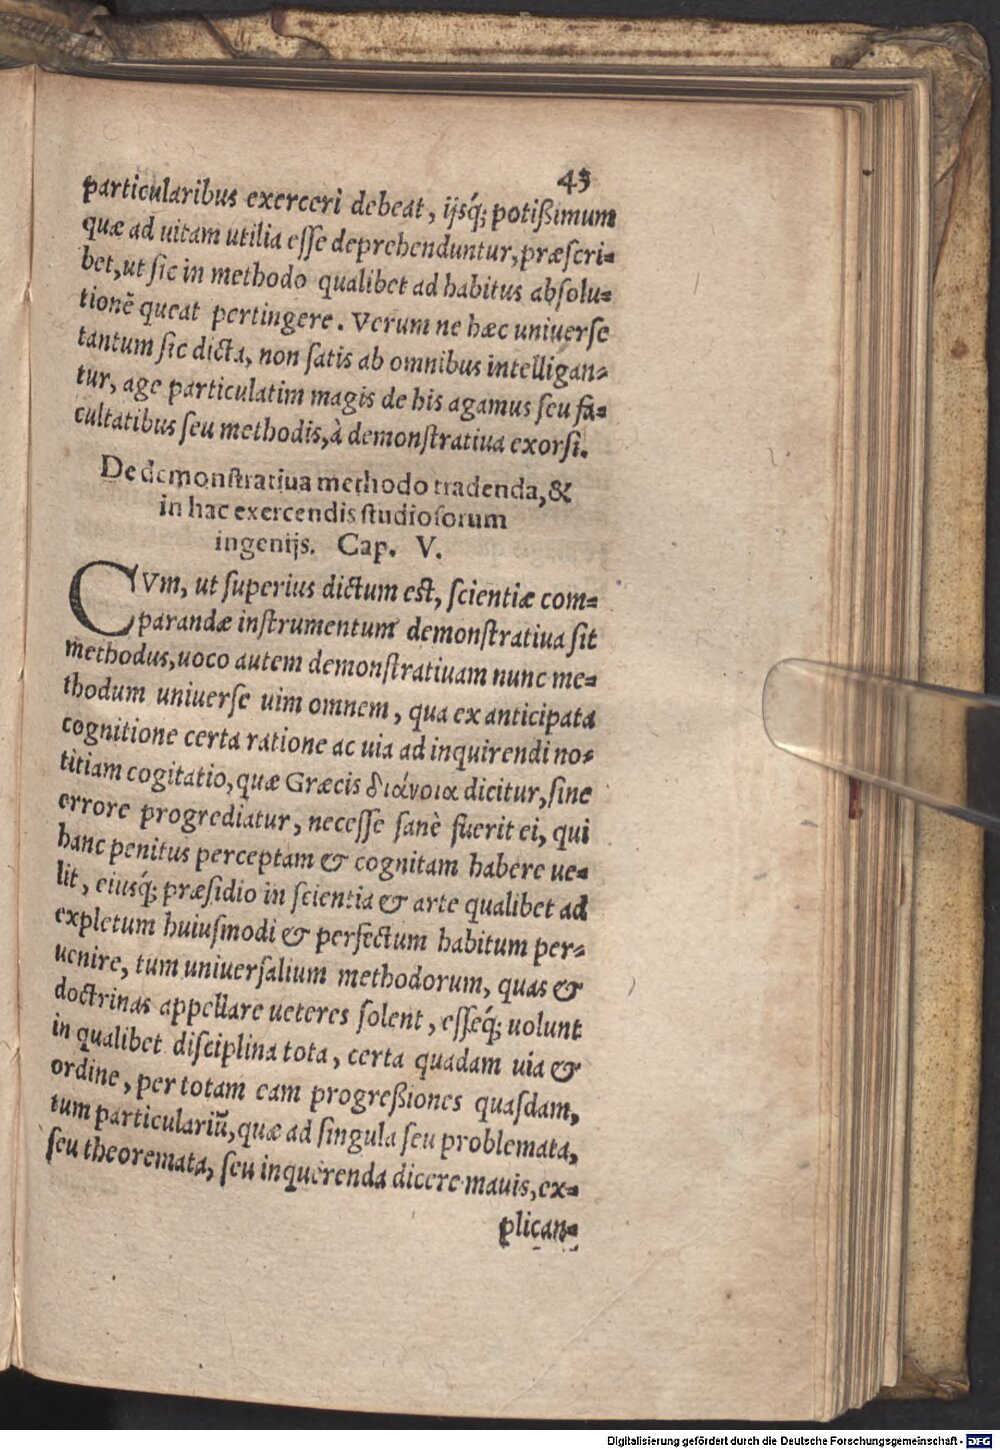 45
particularibus exerceri debeat, ijsq́; potißimum
quæ ad uitam utilia eſſe deprehenduntur, præſcri-
bet, ut ſic in methodo qualibet ad habitus abſolu-
tionē queat pertingere. Verum ne hæc uniuerſe
tantum ſic dicta, non ſatis ab omnibus intelligan-
tur, age particulatim magis de his agamus ſeu fa-
cultatibus ſeu methodis, à demonſtratiua exorſi.
De demonſtratiua methodo tradenda, &
in hac exercendis ſtudioſorum
ingenijs. Cap. V.
CVm, ut ſuperius dictum eſt, ſcientiæ com-
parandæ inſtrumentum demonſtratiua ſit
methodus, uoco autem demonſtratiuam nunc me-
thodum uniuerſe uim omnem, qua ex anticipata
cognitione certa ratione ac uia ad inquirendi no-
titiam cogitatio, quæ Græcis διάνοια dicitur, ſine
errore progrediatur, neceſſe ſanè fuerit ei, qui
hanc penitus perceptam & cognitam habere ue-
lit, eiusq́; præſidio in ſcientia & arte qualibet ad
expletum huiuſmodi & perfectum habitum per-
uenire, tum uniuerſalium methodorum, quas &
doctrinas appellare ueteres ſolent, eſſeq́; uolunt
in qualibet diſciplina tota, certa quadam uia &
ordine, per totam eam progreßiones quaſdam,
tum particulariū, quæ ad ſingula ſeu problemata,
ſeu theoremata, ſeu inquerenda dicere mauis, ex-
plican-
Digitalisierung gefördert durch die Deutsche Forschungsgemeinschaft - DFG